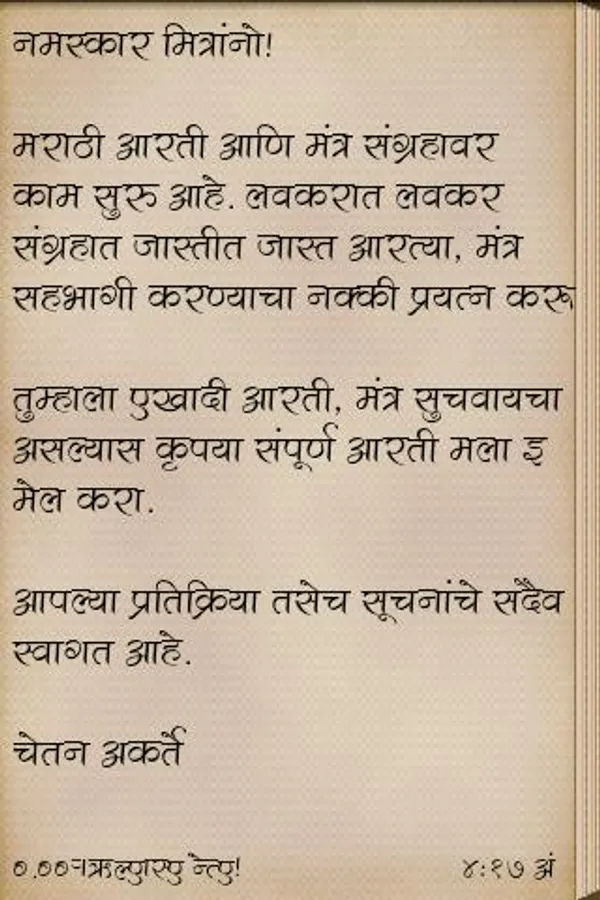 नमस्कार मित्रांनो!
मराठी आरती आणि मंत्र संग्रहावर
काम सुरु आहे. लवकरात लवकर
संग्रहात जास्तीत जास्त आरत्या, मंत्र
सहभागी करण्याचा नक्की प्रयत्न करू
तुम्हाला एखादी आरती, मंत्र सुचवायचा
असल्यास कृपया संपूर्ण आरती मला इ
मेल करा.
आपल्या प्रतिक्रिया तसेच सूचनांचे सदैव
स्वागत आहे.
चेतन अकर्ते
४:१७ अं